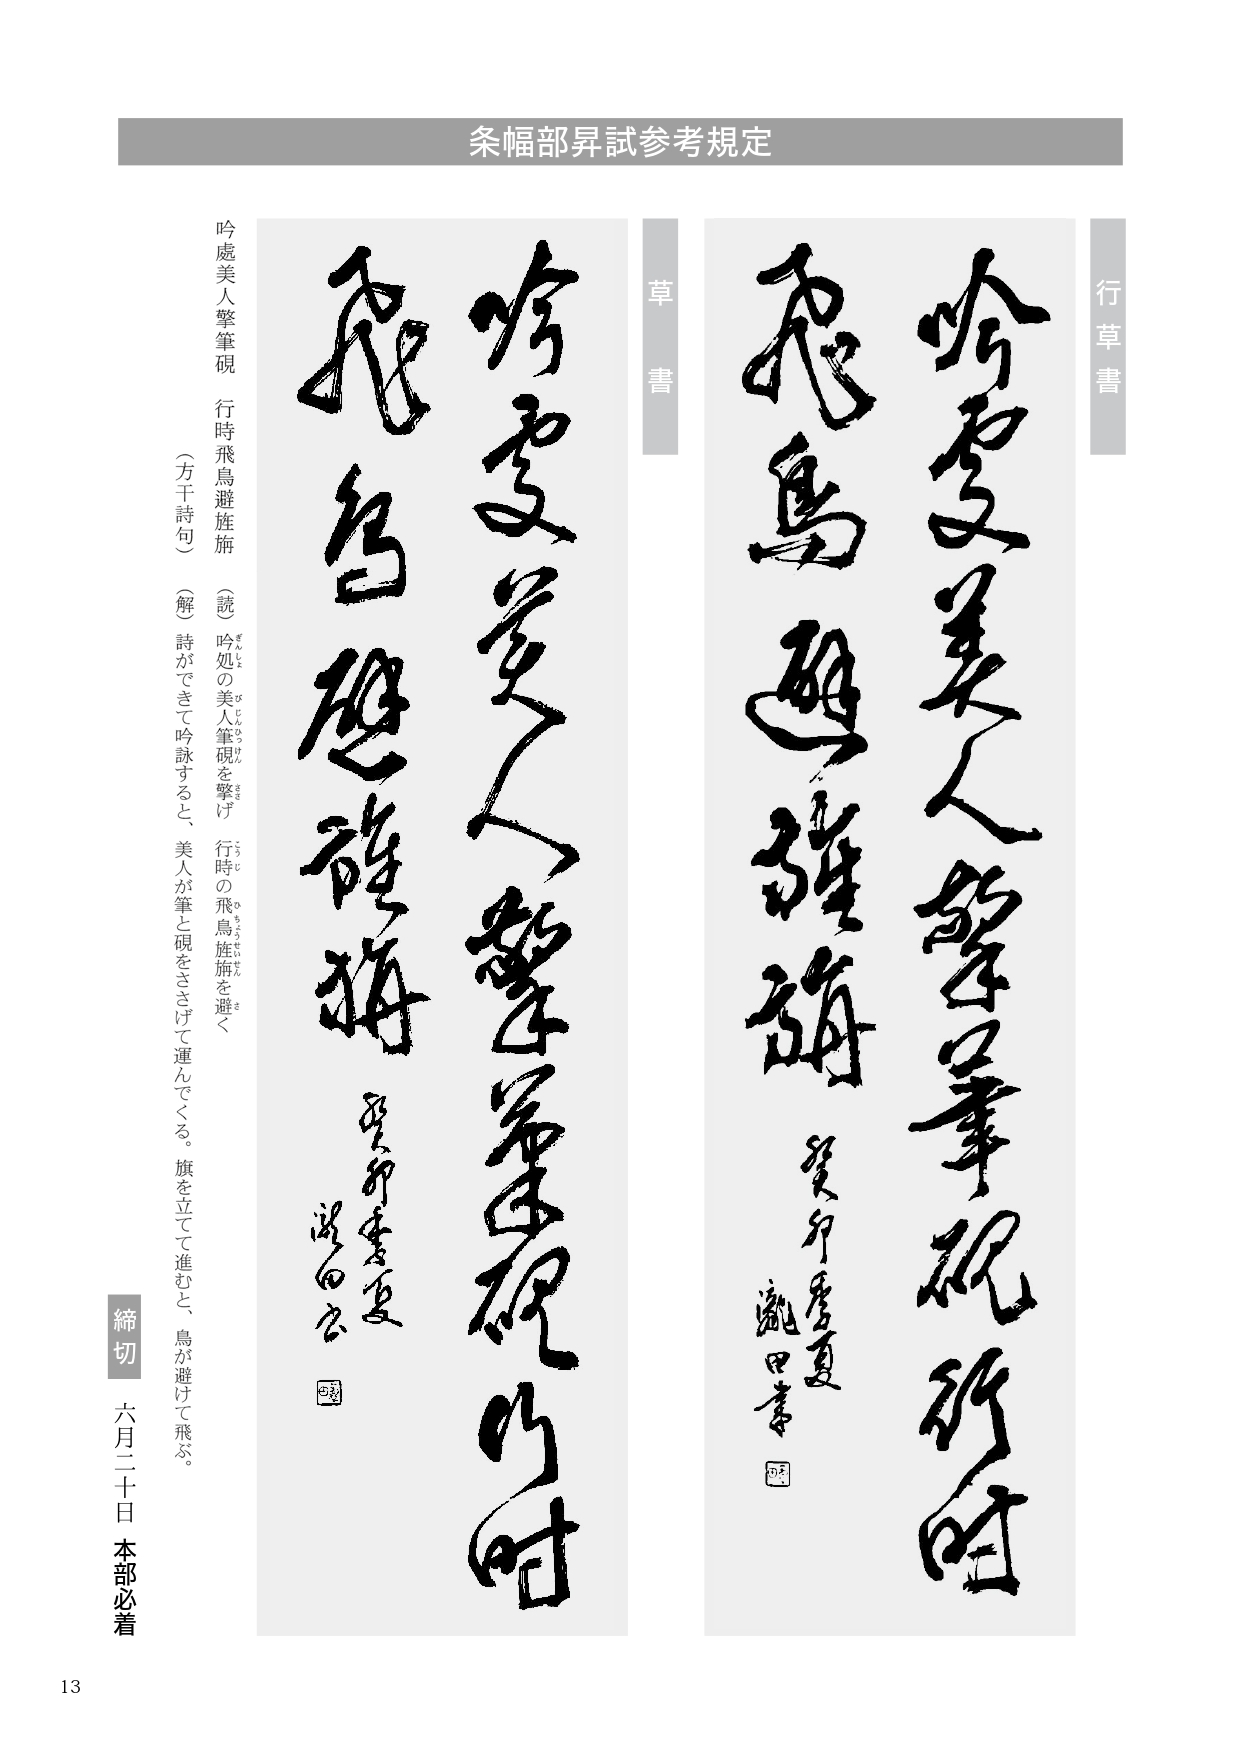 条幅部昇試参考規定
行草書
吟處美人擎筆硯行時
飛鳥避旌旃
癸卯季夏
瀧田書
草書
吟處美人擎筆硯行時
飛鳥避旌旃
癸卯季夏
瀧田書
吟處美人擎筆硯　行時飛鳥避旌旃　（読）吟処の美人筆硯を擎げ　行時の飛鳥旌旃を避く
ぎんしょ　びじんひっけん　ささ　こうじ　ひちょうせいせん　さ
（方干詩句）　（解）詩ができて吟詠すると、美人が筆と硯をささげて運んでくる。旗を立てて進むと、鳥が避けて飛ぶ。
締切　六月二十日　本部必着
13